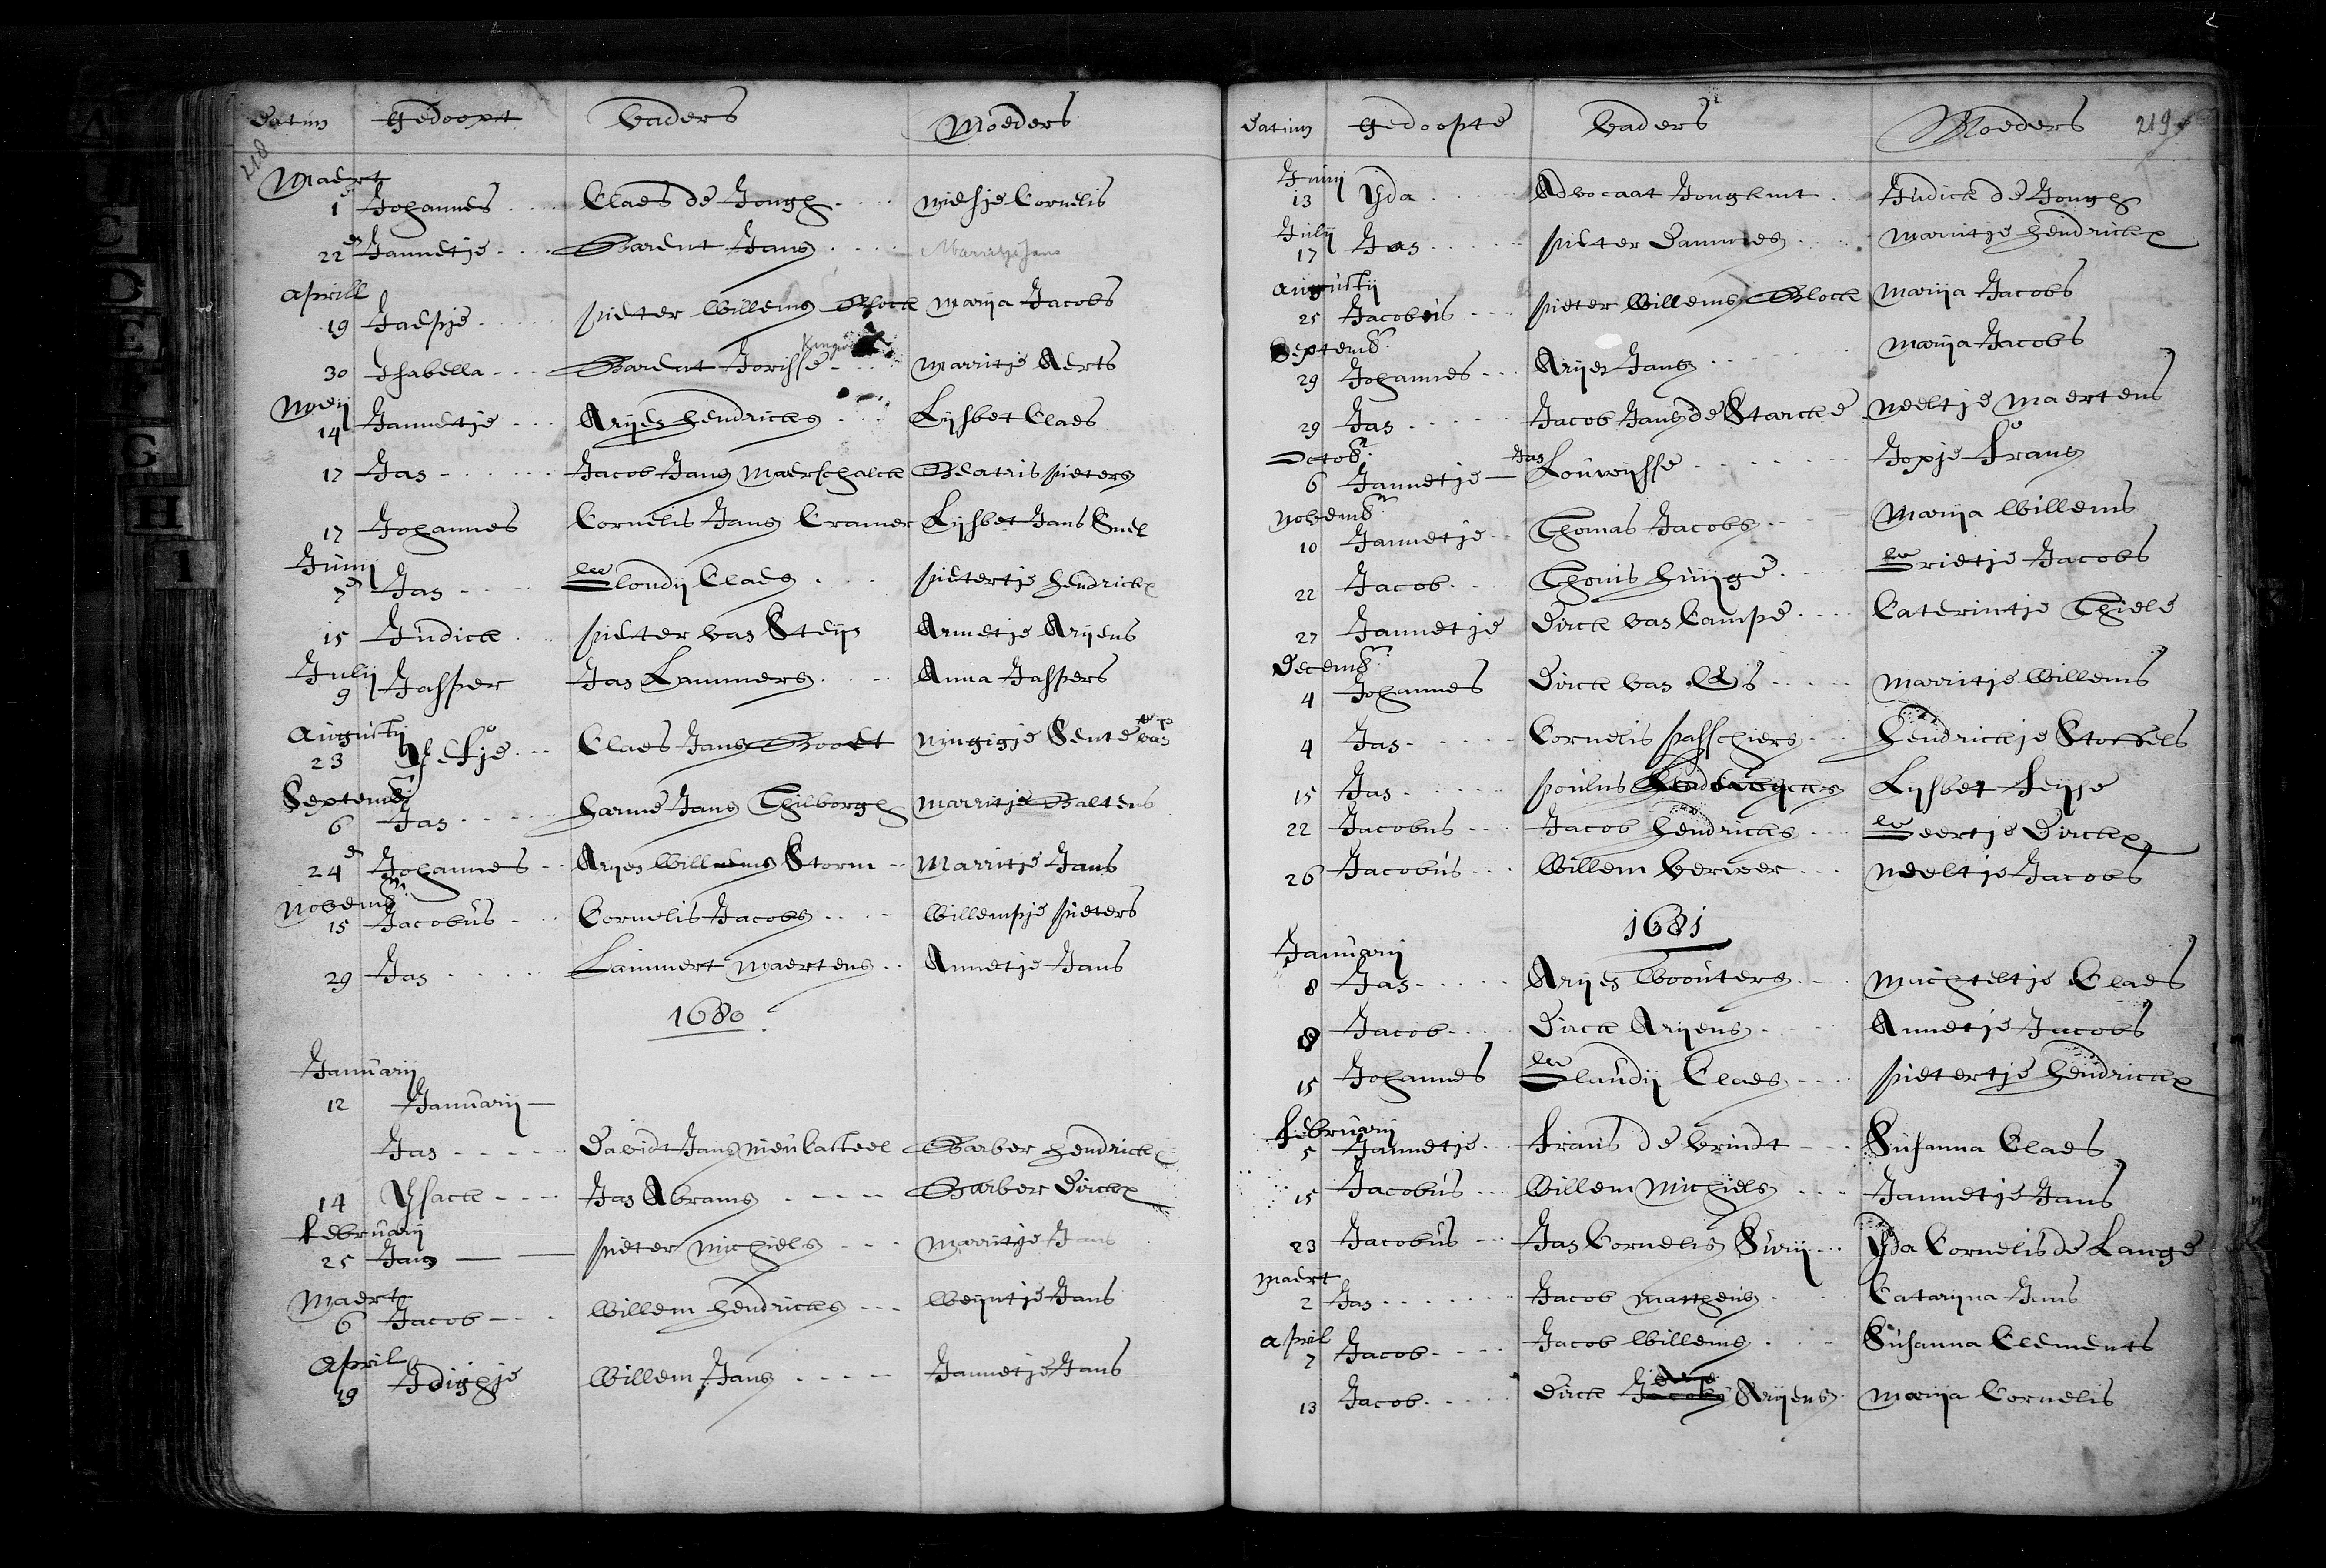 Datum gedoopt Vaders Moeders
218
Maert
1 Johannes Claes de Jongh Miesje Cornelis
22 Jannetje Barent Jans Marritje Jans
Aprill
19 Jaepje Pieter Willems Block Marija Jacobs
30 Isabella Barent Jorisse Marritje Aerts
Meij
14 Jannetje Arijen Hendricks Lijsbet Claes
17 Jan Jacob Jans Maerschalck Beatris Pieters
17 Johannes Cornelis Jans Cramer Lijsbet Jans Snel
Junij
7 Jan Gloudij Claes Pietertje Hendrickx
15 Judick Pieter van Steijn Annetje Arijens
Julij
9 Jasper Jan Lammers Anna Jaspers
Augustij
23 Claes Jans Boodt
Septemb
6 Jan Harme Jans Thilborgh Marritje Baltens
24 Johannes Arijen Willems Storm Marritje Jans
Novemb
15 Jacobus Cornelis Jacobs Willempje Pieters
29 Jan Lammert Maertens Annetje Jans
1680
Januarij
12 Januarij
Jan Davidt Jans Nieucasteel Barber Hendrickx
14 Ysack Jan Abrams Barber Dirckx
Februarij
25 Jans Pieter Michiels Marritje Jans
Maert
6 Jacob Willem Hendricks Weijntje Jans
April
19 Willem Jans Jannetje Jans
Datum gedoopte Vaders Moeders 219
Junij
13 Yda Advocaat Jonghmt Judick de Jongh
Julij
17 Jan Pieter Dammes Marritje Hendrickx
Augustij
25 Jacobus Pieter Willems Block Marija Jacobs
Septemb
29 Johannes Arijen Jans Marija Jacobs
29 Jan Jacob Jans de Starcke Neeltje Maertens
Octob
6 Jannetje Jan Louwijsse Jopje Frans
Novemb
10 Jannetje Thomas Jacobs Marija Willems
22 Jacob Thonis Huijge Grietje Jacobs
27 Jannetje Dirck van Campe Caterintje Thiele
Decemb
4 Johannes Dirck van Es Marritje Willems
4 Jan Cornelis Passchiers Hendrickje Stoffels
15 Jan Poulus Lijsbet Feijse
22 Jacobus Jacob Hendricks Geertje Dirckx
26 Jacobus Willem Verweer Neeltje Jacobs
1681
Januarij
8 Jan Arijen Wouters Machteltje Claes
8 Jacob Dirck Arijens Annetje Jacobs
15 Johannes Glaudij Claes Pietertje Hendrickx
Februarij
5 Jannetje Frans de Vrindt Susanna Claes
15 Jacobus Willem Michiels Jannetje Jans
23 Jacobus Jan Cornelis Swij Yda Cornelis de Lange
Maert
2 Jan Jacob Mattheus Catarijna Jans
April
7 Jacob Jacob Willems Susanna Clements
13 Jacob Dirck Arijens Marija Cornelis